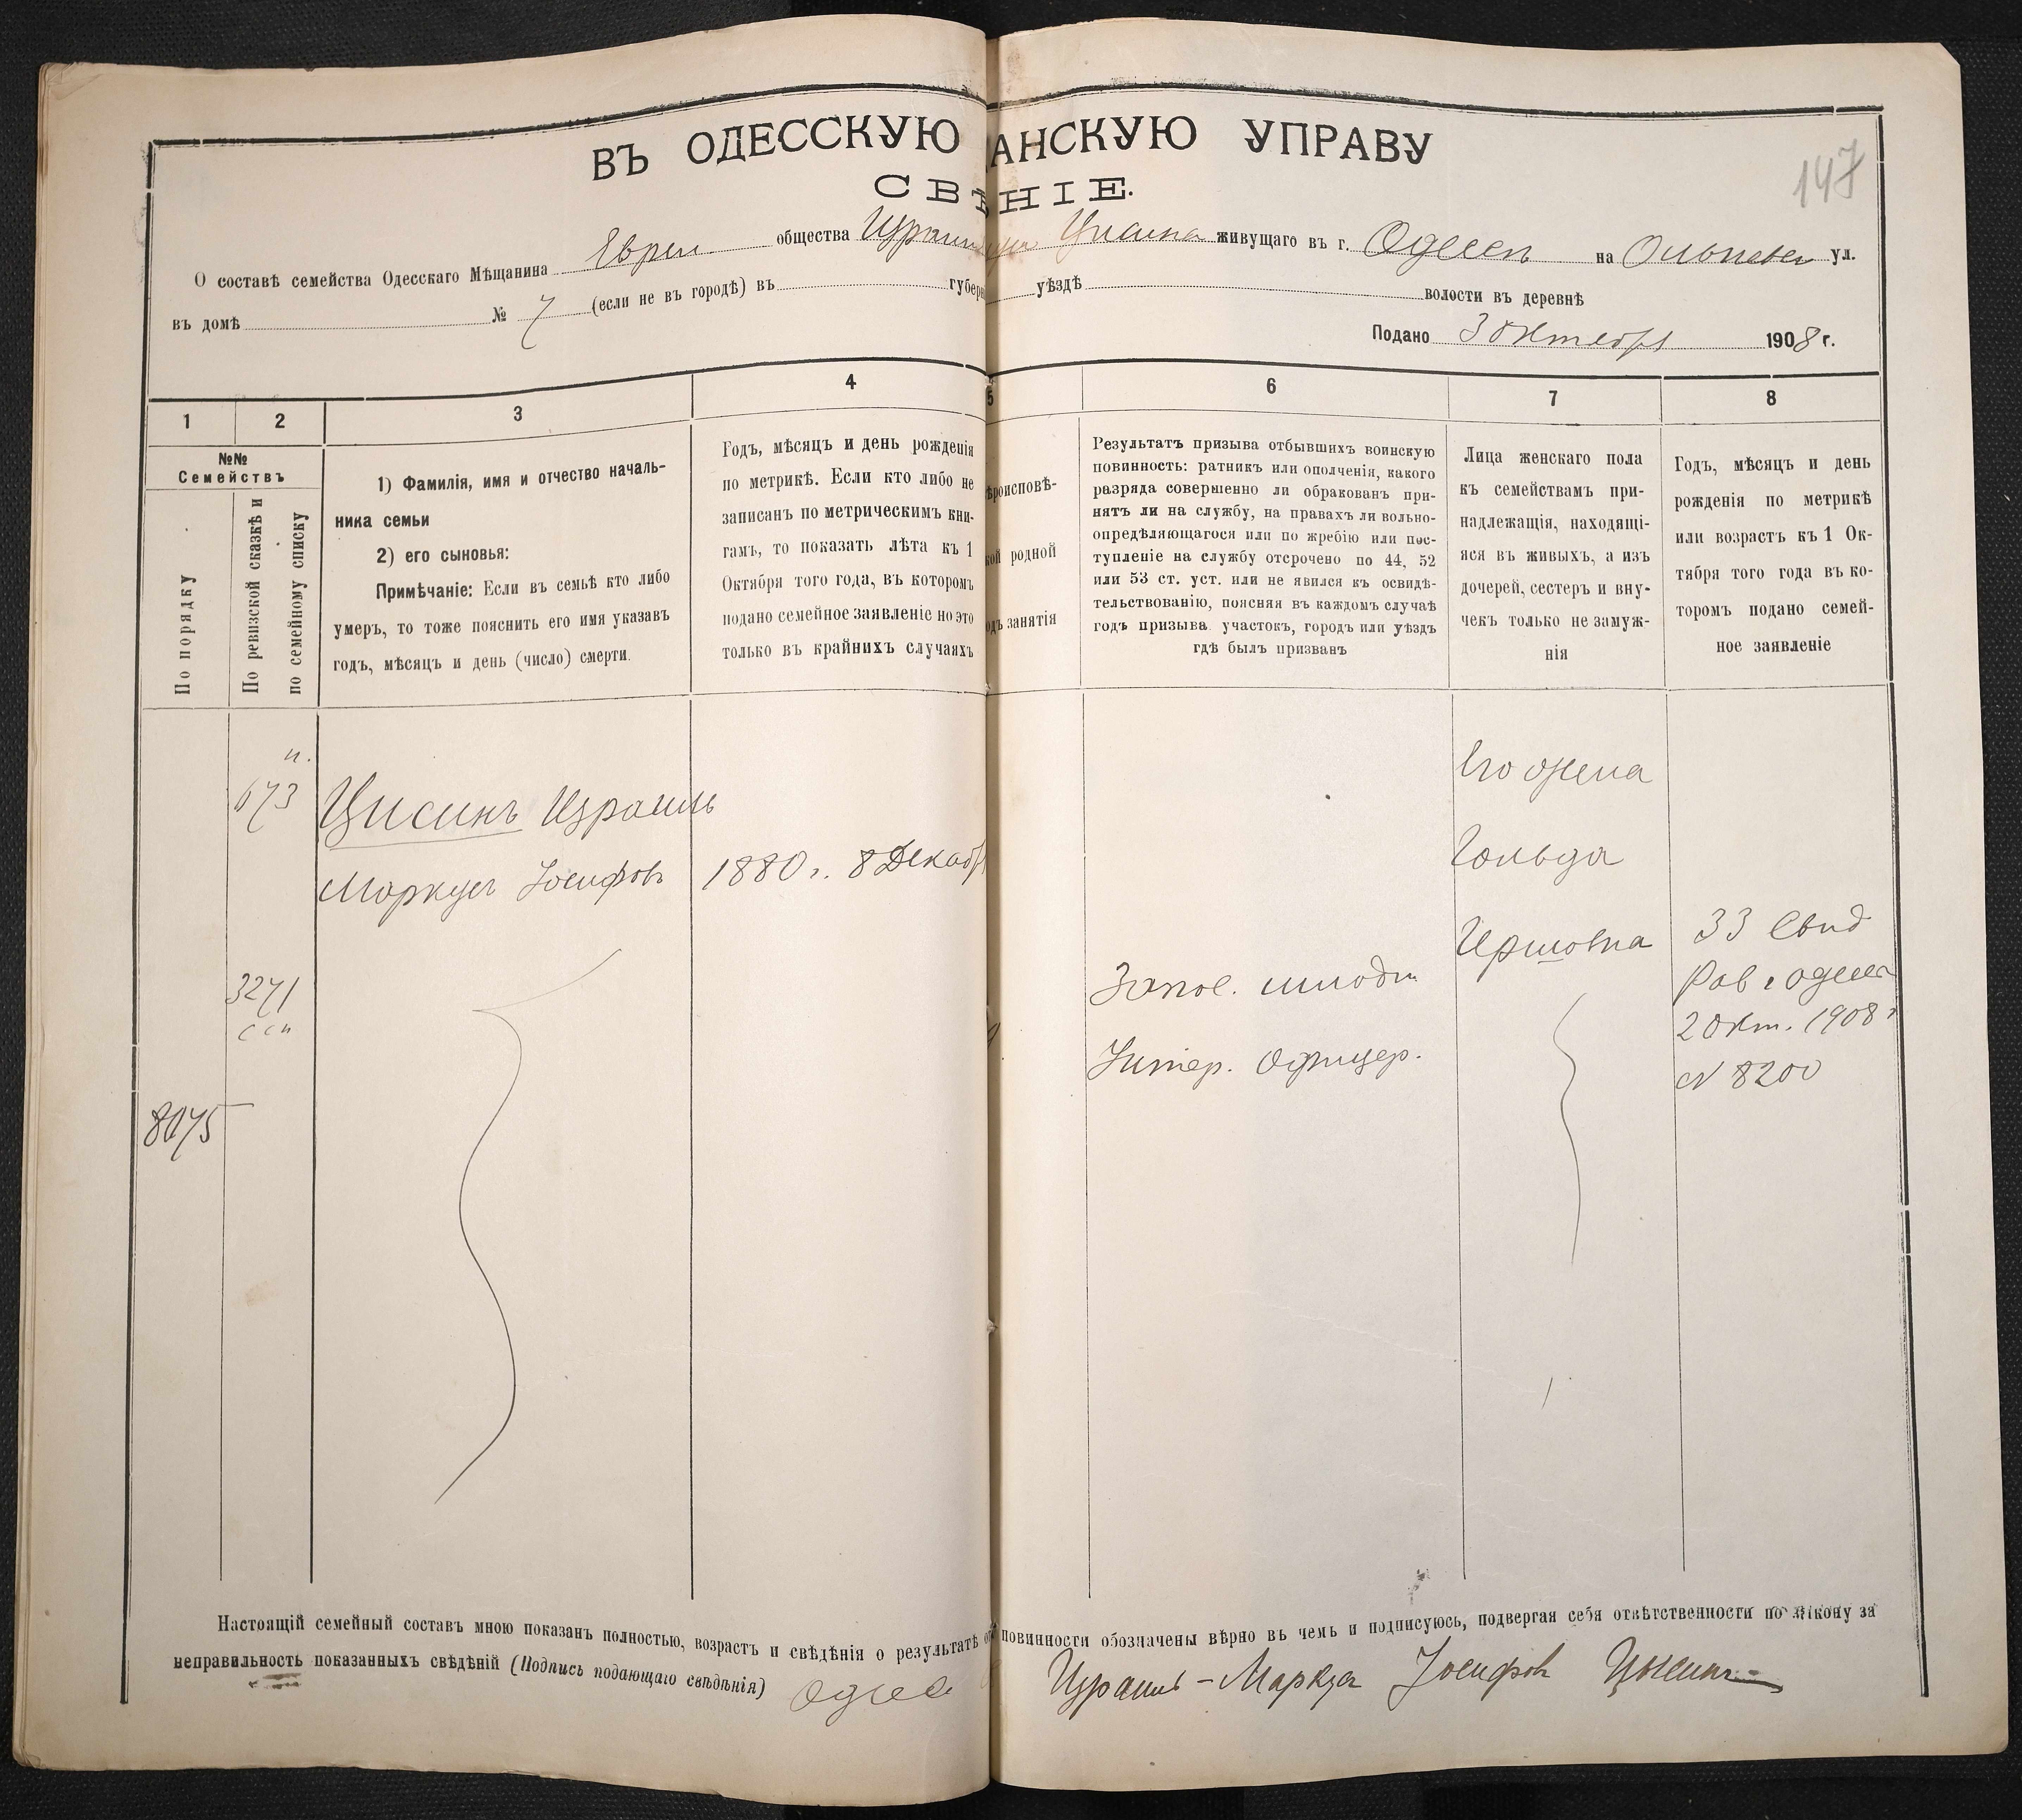 147
ВЪ ОДЕССКУЮ АНСКУЮ УПРАВУ
СВѢНІЕ.
О составѣ семейства Одесскаго Мѣщанина Евреи общества Израиль Цисина живущаго въ г. Одессѣ на ул.
въ домѣ № 7 (если не въ городѣ) въ губерн уѣздѣ волости въ деревнѣ
Подано 3 Октября 1908 г.
1 2 3 4 5 6 7 8
№№
Семействъ
По порядку
По ревизской сказкѣ и
по семейному списку
1) Фамилія, имя и отчество началь-
ника семьи
2) его сыновья:
Примѣчаніе: Если въ семьѣ кто либо
умеръ, то тоже пояснить его имя указавъ
годъ, мѣсяцъ и день (число) смерти.
Годъ, мѣсяцъ и день рожденія
по метрикѣ. Если кто либо не
записанъ по метрическимъ кни-
гамъ, то показать лѣта къ 1
Октября того года, въ которомъ
подано семейное заявленіе но это
только въ крайнихъ случаяхъ
ѣроисповѣ-
кой родной
одъ занятія
Результатъ призыва отбывшихъ воинскую
повинность: ратникъ или ополченія, какого
разряда совершенно ли обракованъ при-
нятъ ли на службу, на правахъ ли вольно-
опредѣляющагося или по жребію или пос-
тупленіе на службу отсрочено по 44, 52
или 53 ст. уст. или не явился къ освидѣ-
тельствованію, поясняя въ каждомъ случаѣ
годъ призыва участокъ, городъ или уѣздъ
гдѣ былъ призванъ
Лица женскаго пола
къ семействамъ при-
надлежащія, находящі-
яся въ живыхъ, а изъ
дочерей, сестеръ и вну-
чекъ только не замуж-
нія
Годъ, мѣсяцъ и день
рожденія по метрикѣ
или возрастъ къ 1 Ок-
тября того года въ ко-
торомъ подано семей-
ное заявленіе
673
3271
ссп
8075
Цисинъ Израиль
Маркусъ Іосифовъ
1880 г. 8 Декабр
Запос. младш
Унтер. Офицер.
Его жена
Гольда
Иршовна
33 Свид
Рав г Одессы
2 Окт. 1908 г
N 8200
Настоящій семейный составъ мною показанъ полностью, возрастъ и свѣдѣнія о результатѣ от повинности обозначены вѣрно въ чемъ и подписуюсь, подвергая себя отвѣтственности по закону за
неправильность показанныхъ свѣдѣній (Подпись подающаго свѣдѣнія) Одесс Израиль-Маркус Іосифов Цысинъ